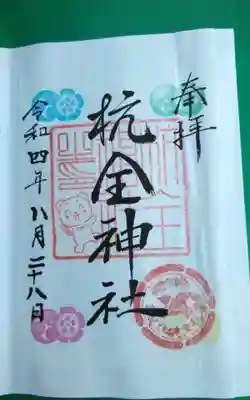 奉拝
杭全神社
令和四年八月二十八日